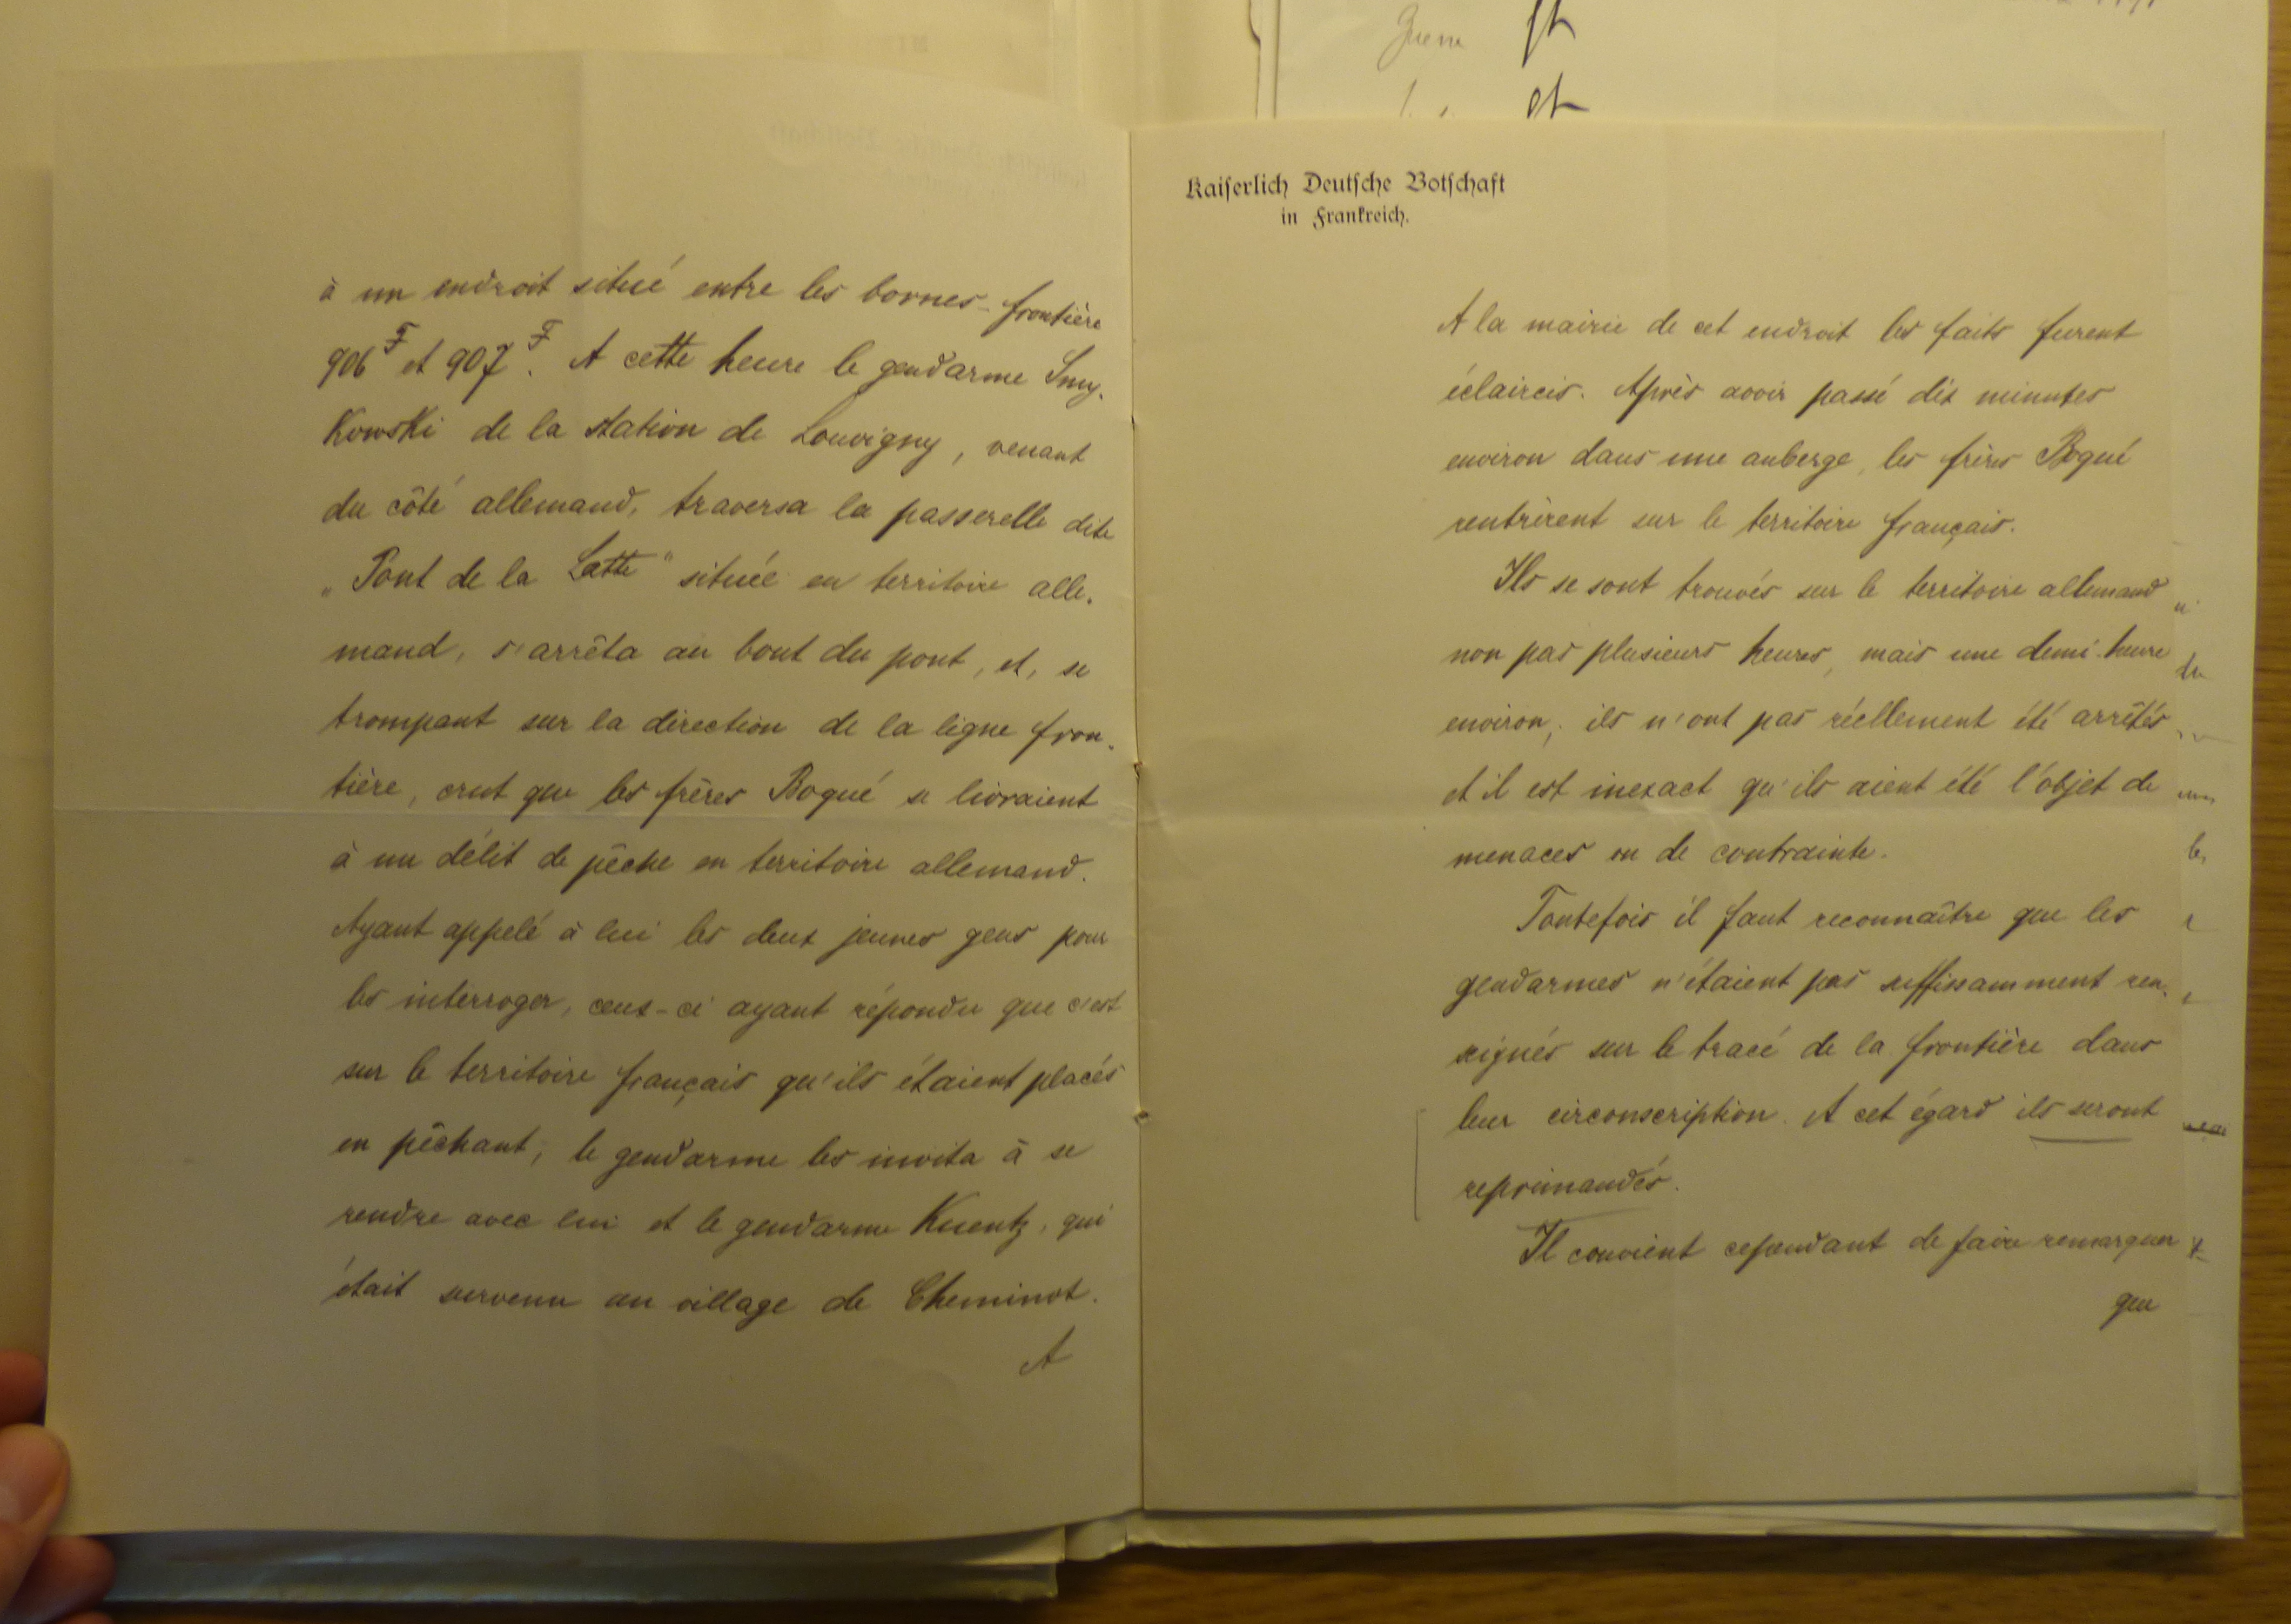 à un endroit situé entre les bornes-frontière
906 F et 907 F. A cette heure le gendarme Smy-
Kowski de la station de Louvigny, venant
du côté allemand, traversa la passerelle dite
„Pont de la Latte“ située en territoire alle-
mand, s'arrêta au bout du pont, et, se
trompant sur la direction de la ligne fron-
tière, crut que les frères Bogué se livraient
à un délit de pêche en territoire allemand.
Ayant appelé à lui les deux jeunes gens pour
les interroger, ceux-ci ayant répondu que c'est
sur le territoire français qu'ils étaient placés
en pêchant, le gendarme les invita à se
rendre avec lui et le gendarme Kuentz, qui
était survenu au village de Cheminot.
A
Kaiserlich Deutsche Botschaft
in Frankreich.
A la mairie de cet endroit les faits furent
éclaircis. Après avoir passé dix minutes
environ dans une auberge, les frères Bogué
rentrèrent sur le territoire français.
Ils se sont trouvés sur le territoire allemand
non pas plusieurs heures, mais une demi-heure
environ; ils n'ont pas réellement été arrêtés
et il est inexact qu'ils aient été l'objet de
menaces ou de contrainte.
Toutefois il faut reconnaître que les
gendarmes n'étaient pas suffissamment ren-
seignés sur le tracé de la frontière dans
leur circonscription. A cet égard ils seront
reprimandés.
Il convient cependant de faire remarquer
que